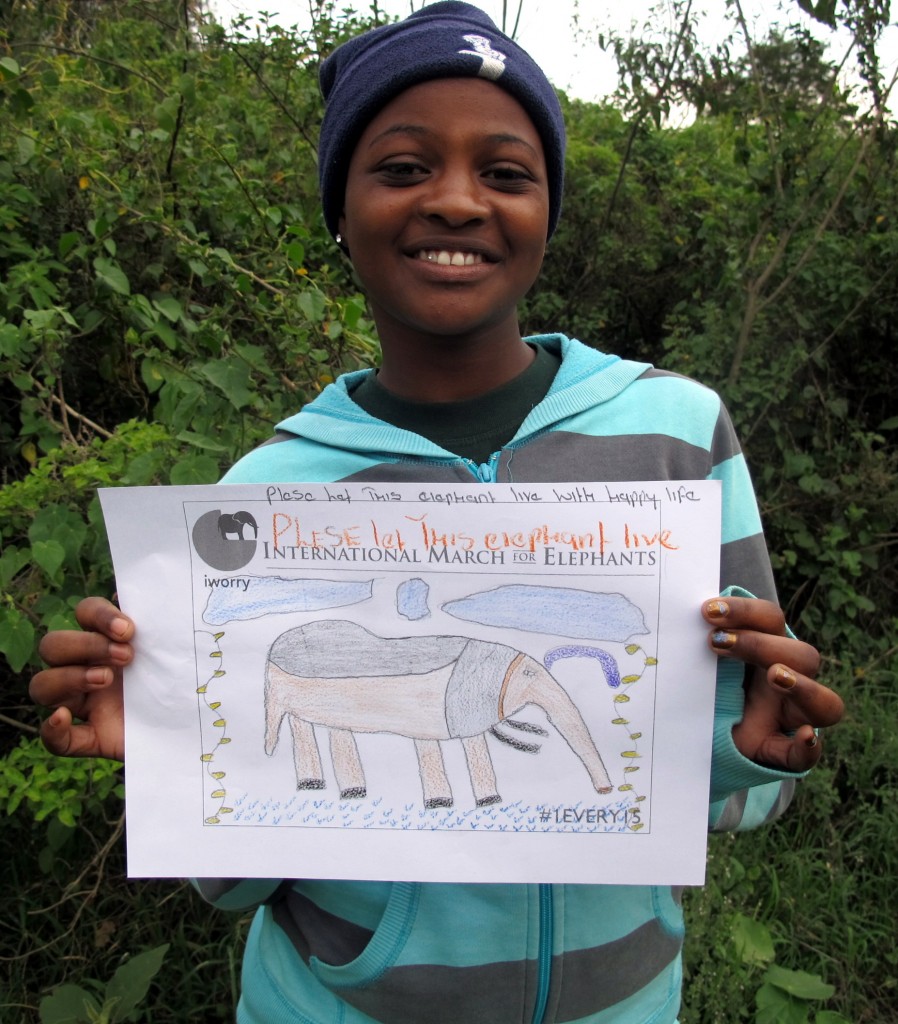 Plese let This elephant live with Happy life
PLESE let This elephant live
INTERNATIONAL MARCH FOR ELEPHANTS
iworry
#1EVERY15